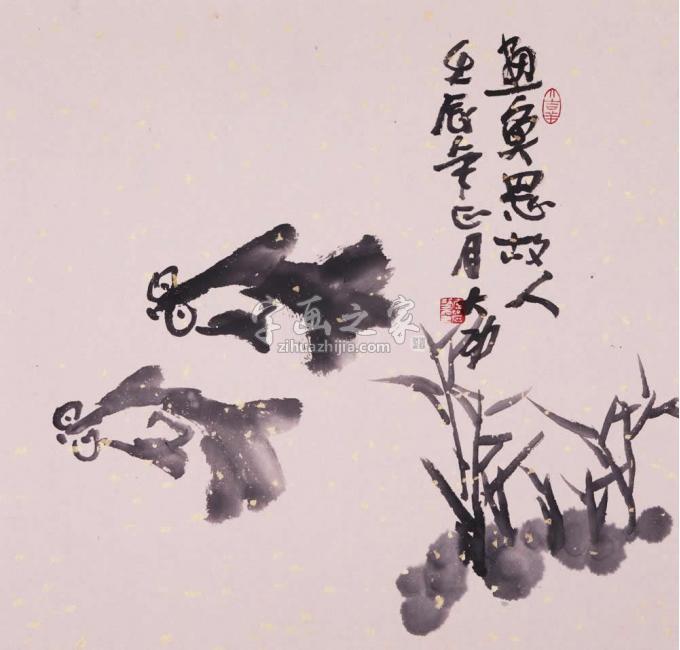 画鱼思故人
壬辰年正月 大
字画之家
zihuazhijia.com